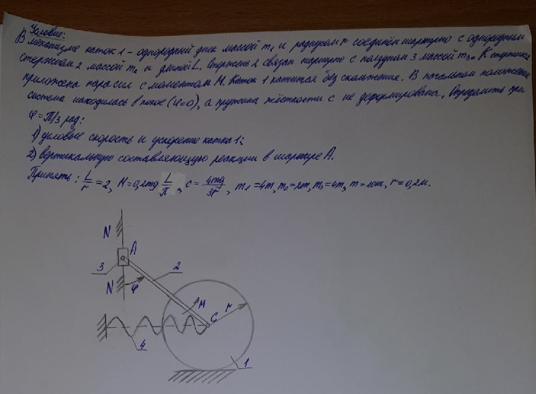 Условие:
В механизме каток 1 - однородный диск массой m₁ и радиусом r соединён шарнирно с однородным
стержнем 2 массой m₂ и длиной L. Стержень 2 связан шарнирно с ползуном 3 массой m₃. К стержню
приложена пара сил с моментом M. Каток 1 катится без скольжения. В начальном положении
система находилась в покое (φ=0), а пружина жёсткости c не деформирована. Определить при
φ=π/3 рад:
1) угловые скорость и ускорение катка 1;
2) вертикальную составляющую реакции в шарнире A.
Принять: L/r=2, M=0,2mg L/π, c=4mg/3r, m₁=4m, m₂=2m, m₃=4m, m=10кг, r=0,2м.
N
A
3
2
N
φ
M
r
C
4
1